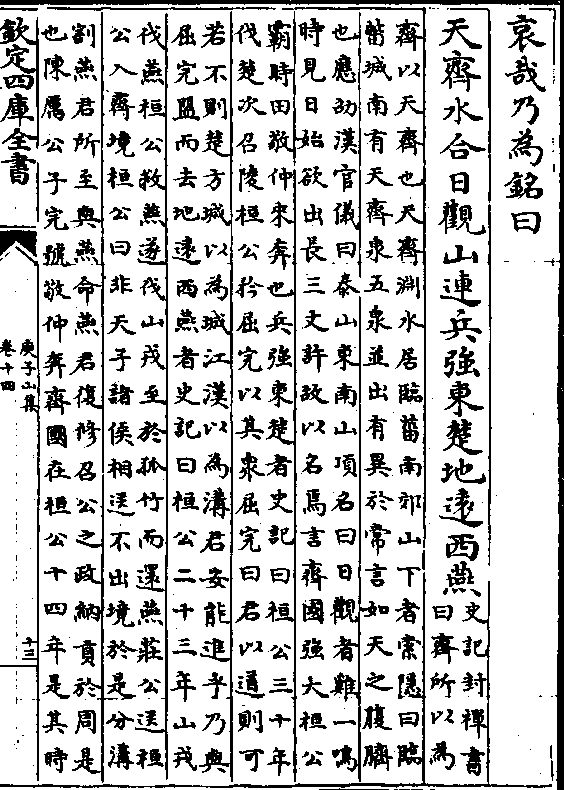 哀哉乃為銘曰
天齊水合日觀山連兵強東楚地遠西燕
史記封禪書
曰齊所以為
齊以天齊也天齊淵水居臨菑南郊山下者索隱曰臨
菑城南有天齊泉五泉並出有異於常言如天之腹臍
也應劭漢官儀曰泰山東南山頂名曰日觀者雞一鳴
時見日始欲出長三丈許故以名焉言齊國強大桓公
霸時田敬仲來奔也兵強東楚者史記曰桓公三十年
伐楚次召陵桓公矜屈完以其衆屈完曰君以道則可
若不則楚方城以為城江漢以為溝君安能進乎乃與
屈完盟而去地遠西燕者史記曰桓公二十三年山戎
伐燕桓公救燕遂伐山戎至於孤竹而還燕莊公送桓
公入齊境桓公曰非天子諸侯相送不出境於是分溝
割燕君所至與燕命燕君復修召公之政納貢於周是
也陳厲公子完號敬仲奔齊國在桓公十四年是其時
欽定四庫全書
庾子山集
卷十四
十三